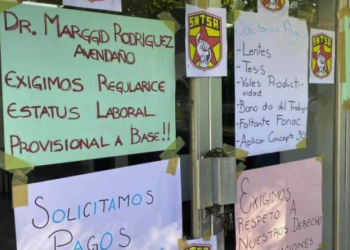 Dr. MARGGID RODRIGUEZ
AVENDAÑO
EXIGIMOS REGULARICE
ESTATUS LABORAL
PROVISIONAL A BASE!!
SNTSA
Solicitamos Pagos
- Lentes
- Tesis
- Vales Productividad
- Bono día del Trabajo
- Faltante Fonac
- Aplicar Concepto 30
SOLICITAMOS
PAGOS
EXIGIMOS
RESPETO A
NUESTROS DERECHO